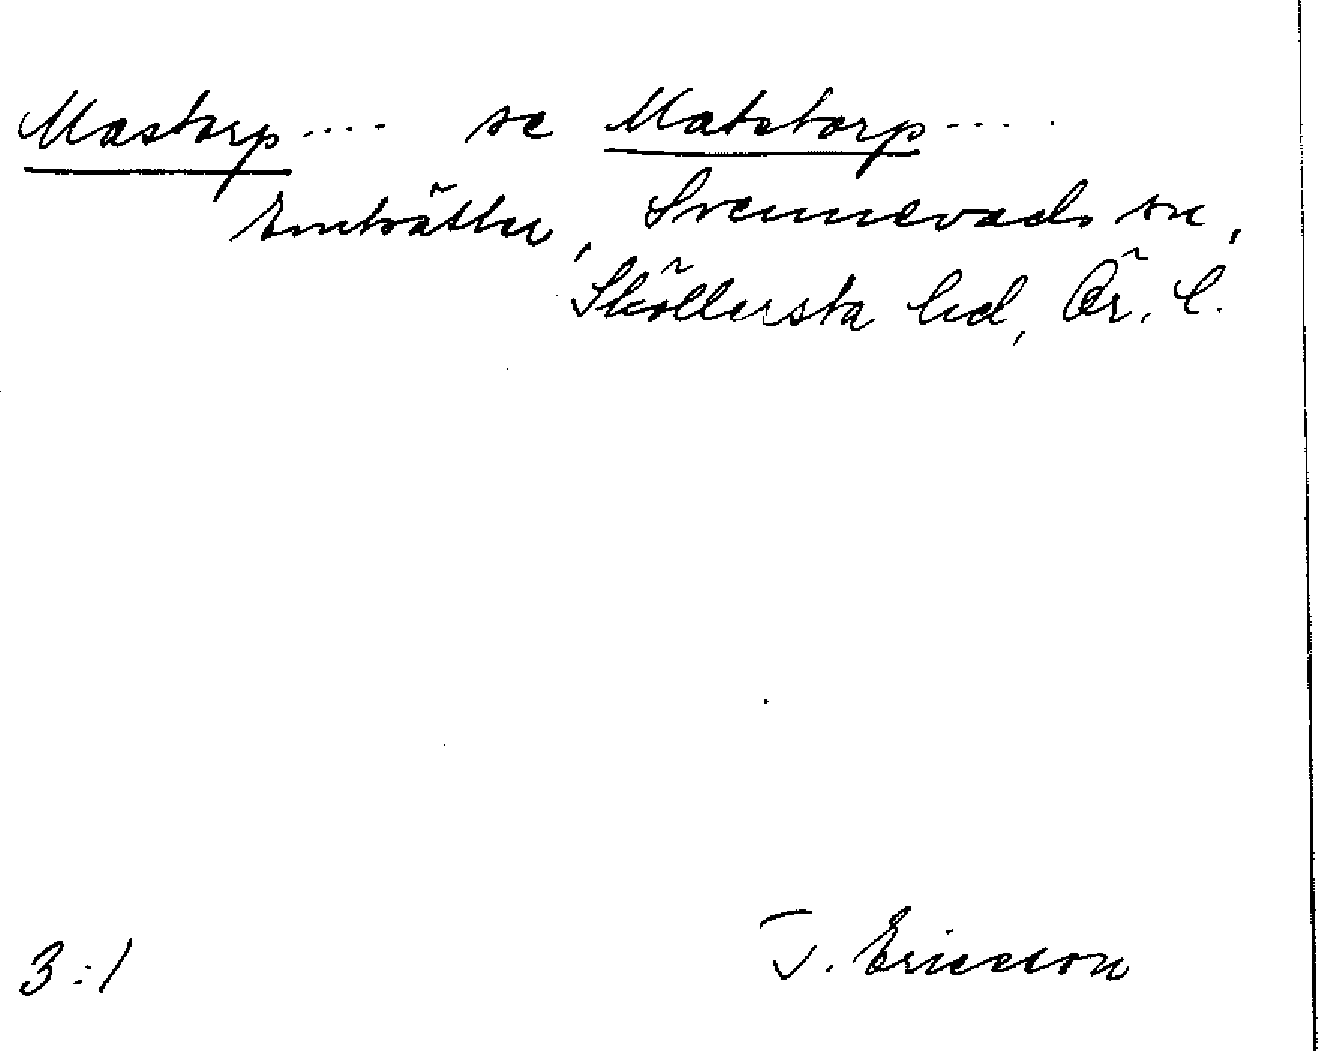 Mastorp.... se Matstorp....
Svennevads sn,
Sköllersta hd, Ör. l.
3:1 J. Ericsson